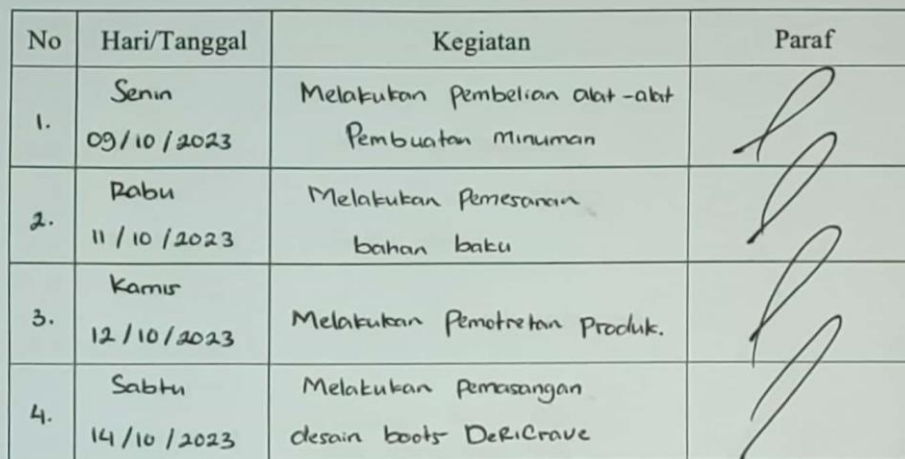 No Hari/Tanggal Kegiatan Paraf
1. Senin
09/10/2023
Melakukan Pembelian alat-alat
Pembuatan minuman
2. Rabu
11/10/2023
Melakukan Pemesanan
bahan baku
3. Kamis
12/10/2023
Melakukan Pemotretan Produk.
4. Sabtu
14/10/2023
Melakukan Pemasangan
desain boots DeRiCrave